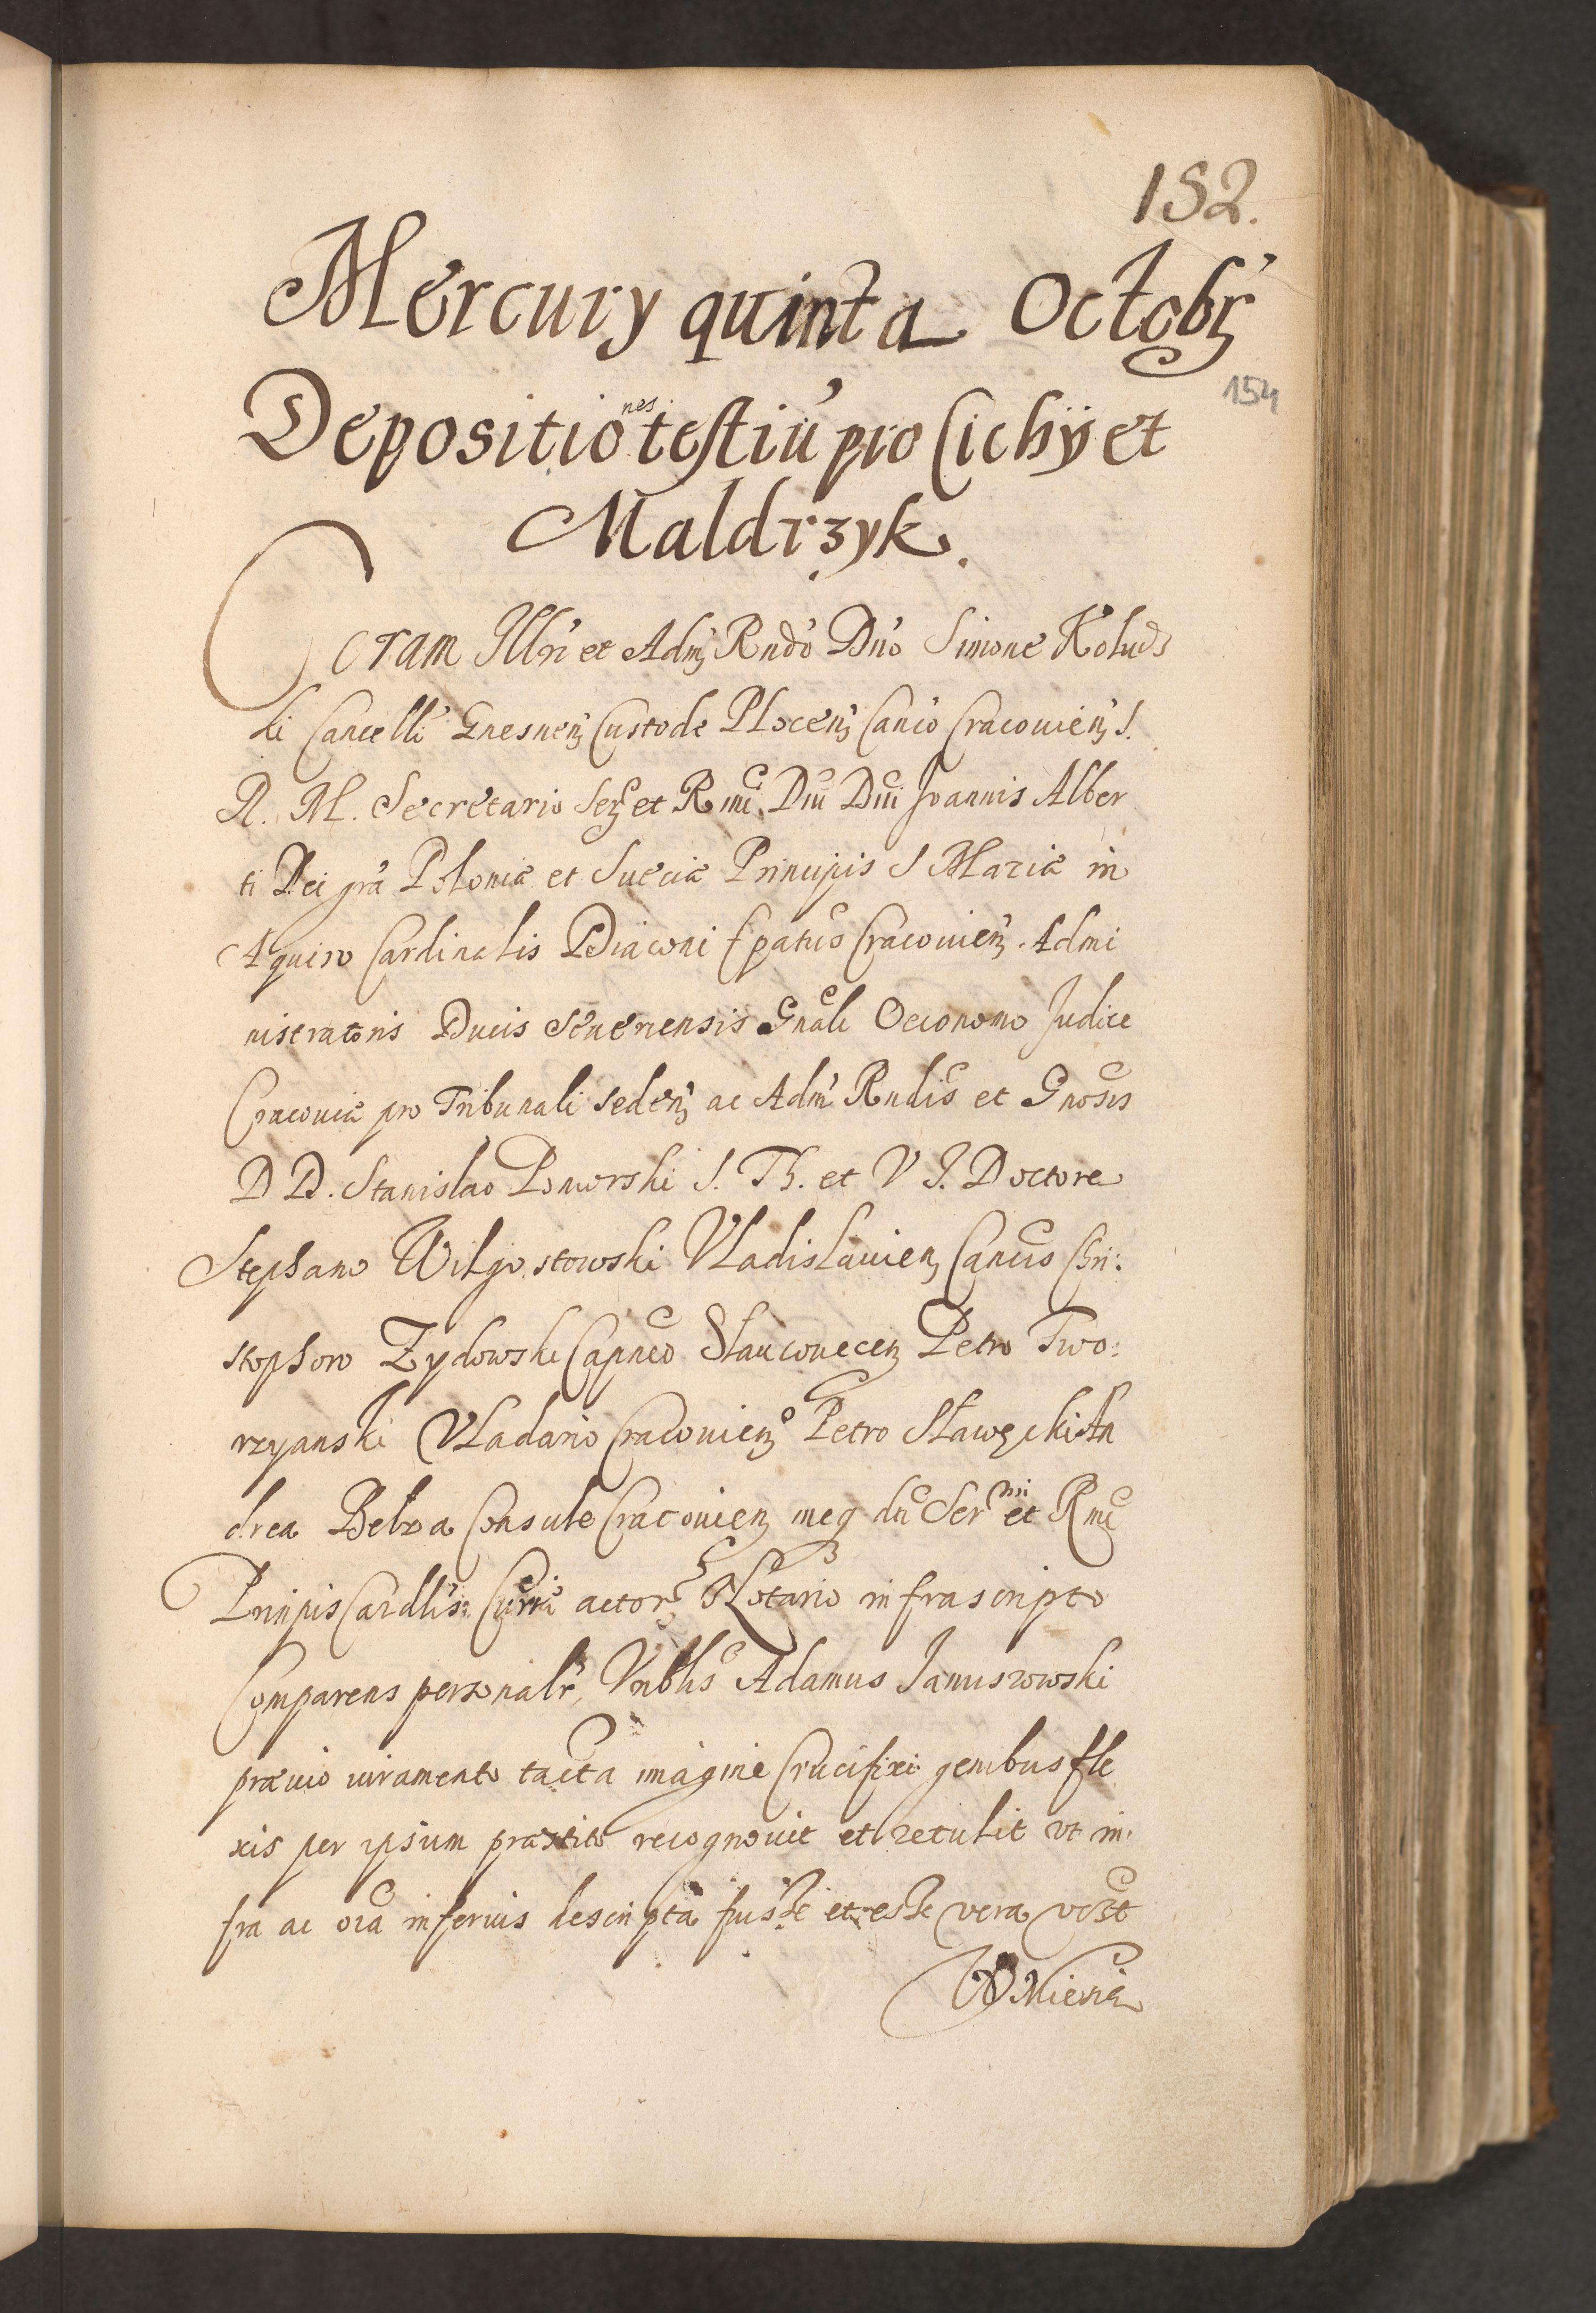 152.
Mercury quinta Octobr
154
Depositiones testiu pro Cichy et
Maldrzyk.
Coram Illri et Adm Rndo Dno Simone Koluds
ki Cancell Gnesnen Custode Plocen Canco Cracouien S.
R. M. Secretario Ser et Rmi Dni Dni Joannis Alber
ti Dei gra Poloniæ et Sueciæ Principis S Mariæ in
Aquiro Cardinalis Diaconi Epatus Cracouien Admi
nistratoris Ducis Seueriensis Gnali Oeconomo Judice
Cracouiæ pro Tribunali seden ac Adm Rndis et Gnosis
D D. Stanislao Pomorski S. Th. et V J. Doctore
Stephano Wilgostowski Vladislauien Cancis Chri:
stophoro Zydowski Capneo Slaucouecen Petro Two:
rzyanski Vladario Cracouien Petro Sławęcki An
drea Belza Consule Cracouien meq du Ser mi et Rmi
Prinpis Cardlis: Curiæ actor Notario infrascripto
Comparens personalr, Vnblis Adamus Januszowski
præuio iuramento tacta imagine Crucifixi genibus fle
xis per ipsum præstito recognouit et retulit vt in
fra ac oia inferius descripta fuisse et esse vera